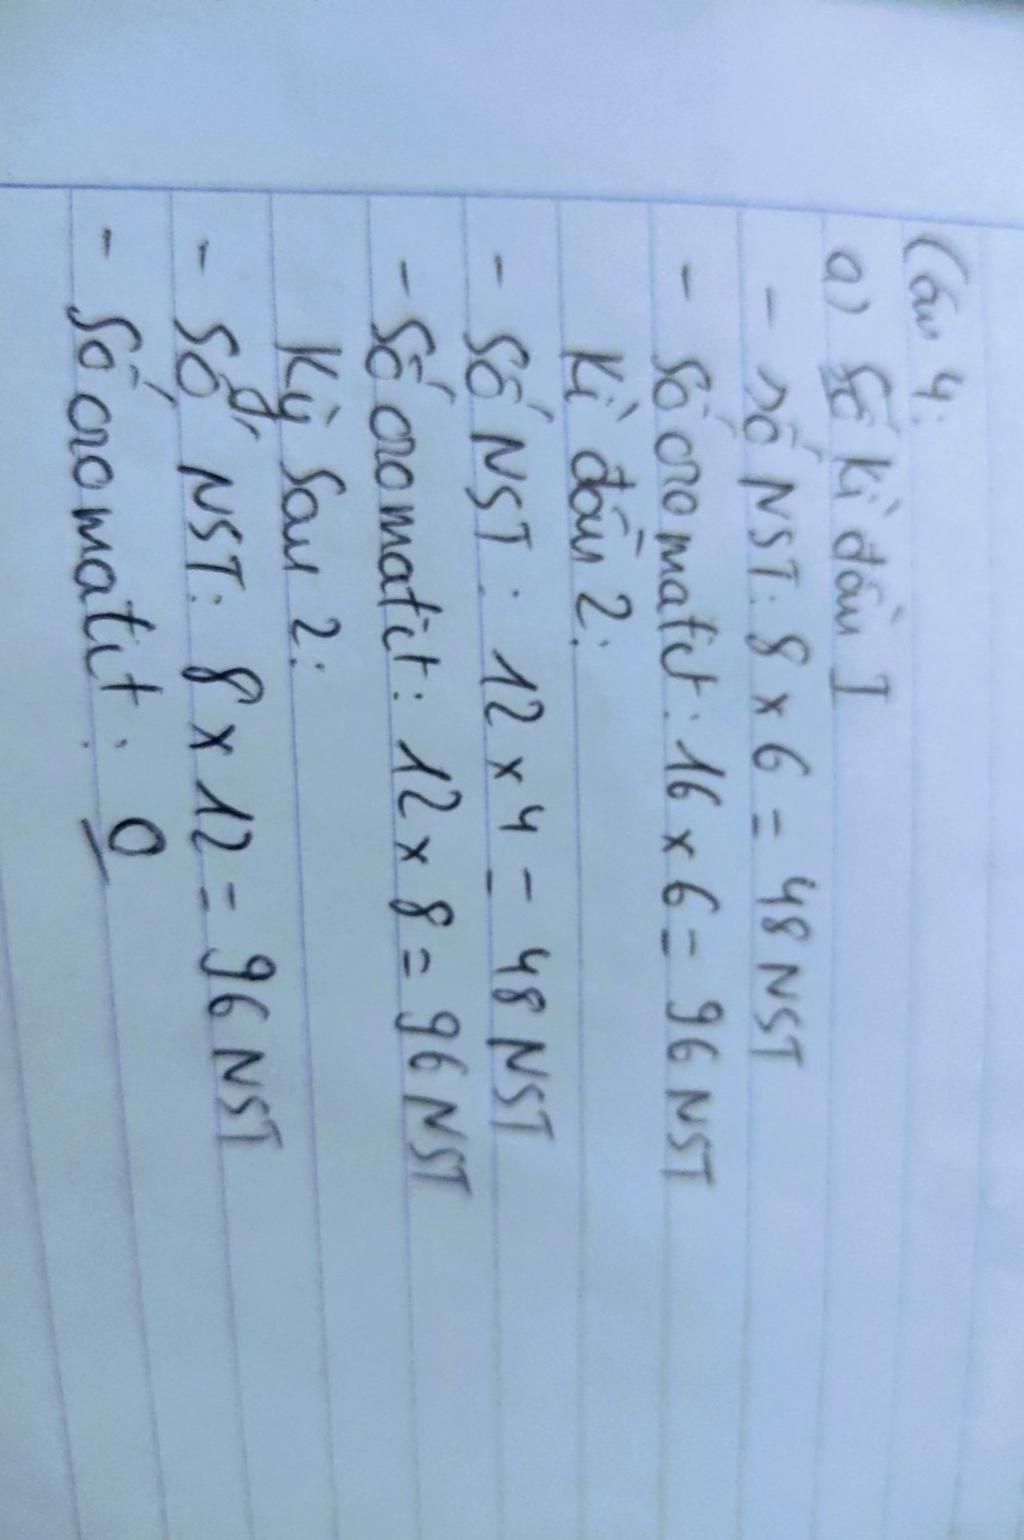 Câu 4:
a) Số Kì đầu I
- số NST: 8 x 6 = 48 NST
- Số cromatit: 16 x 6 = 96 NST
Kì đầu 2:
- Số NST: 12 x 4 = 48 NST
- Số cromatit: 12 x 8 = 96 NST
Kỳ sau 2:
- Số NST: 8 x 12 = 96 NST
- Số cromatit: 0